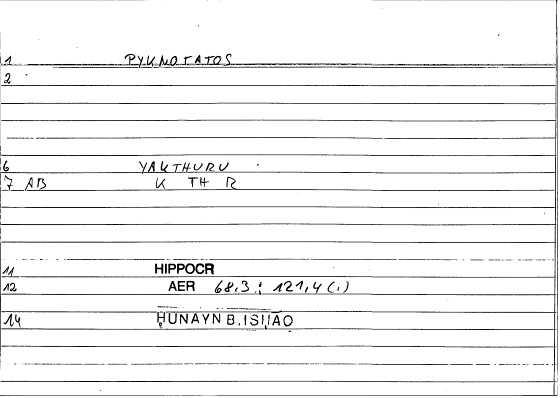 1 PYKNOTATOS
2
6 YAKTHURU
7 AB K TH R
11 HIPPOCR
12 AER 68,3 ; 121,4 (.)
14 ḤUNAYN B. ISḤĀQ